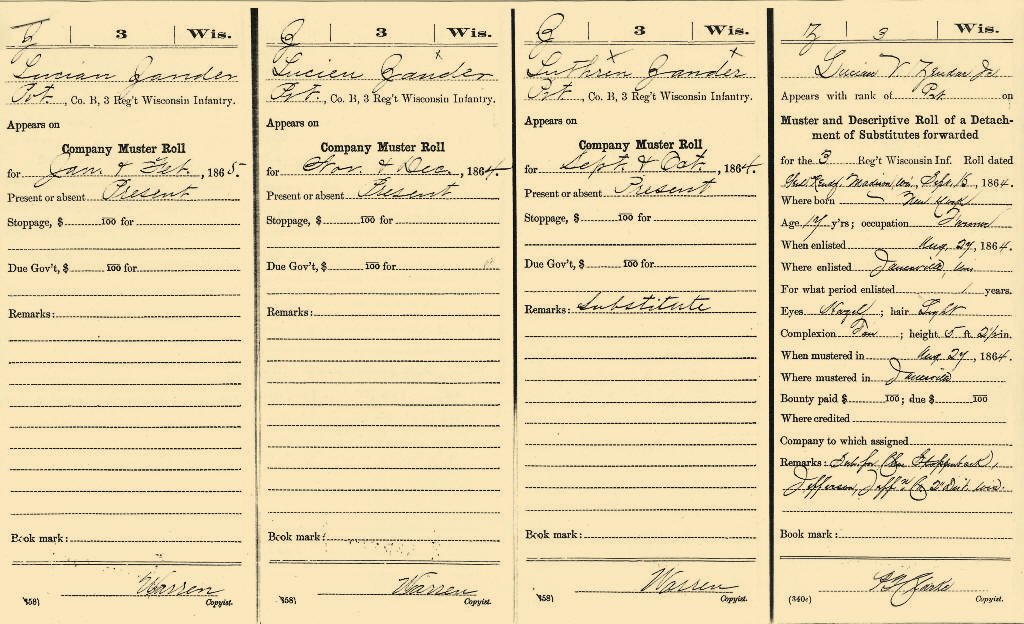 Z | 3 | Wis.
Lucian Zander
Pvt., Co. B, 3 Reg't Wisconsin Infantry.
Appears on
Company Muster Roll
for Jan. & Feb., 1865.
Present or absent Present
Stoppage, $ 100 for
Due Gov't, $ 100 for
Remarks:
Book mark:
Warren
(358) Copyist.
Z | 3 | Wis.
Lucien Zander
Pvt., Co. B, 3 Reg't Wisconsin Infantry.
Appears on
Company Muster Roll
for Nov. & Dec., 1864.
Present or absent Present
Stoppage, $ 100 for
Due Gov't, $ 100 for
Remarks:
Book mark:
Warren
(358) Copyist.
Z | 3 | Wis.
Luthrin Zander
Pvt., Co. B, 3 Reg't Wisconsin Infantry.
Appears on
Company Muster Roll
for Sept. & Oct., 1864.
Present or absent Present
Stoppage, $ 100 for
Due Gov't, $ 100 for
Remarks: Substitute
Book mark:
Warren
(358) Copyist.
Z | 3 | Wis.
Lucian V. Jr.
Appears with rank of Pvt. on
Muster and Descriptive Roll of a Detach-
ment of Substitutes forwarded
for the 3 Reg't Wisconsin Inf. Roll dated
Madison, Wis., Sept. 15, 1864.
Where born New York
Age 17 y'rs; occupation Farmer
When enlisted Aug. 27, 1864.
Where enlisted Janesville, Wis
For what period enlisted 1 years.
Eyes Hazel; hair Light
Complexion; height 5 ft. 2½ in.
When mustered in Aug. 27, 1864.
Where mustered in Janesville
Bounty paid $ 100; due $ 100
Where credited
Company to which assigned
Remarks: Sub. for Chas.
Jefferson, Jeff'n Co. 2" Dist. Wis.
Book mark:
(340c) Copyist.